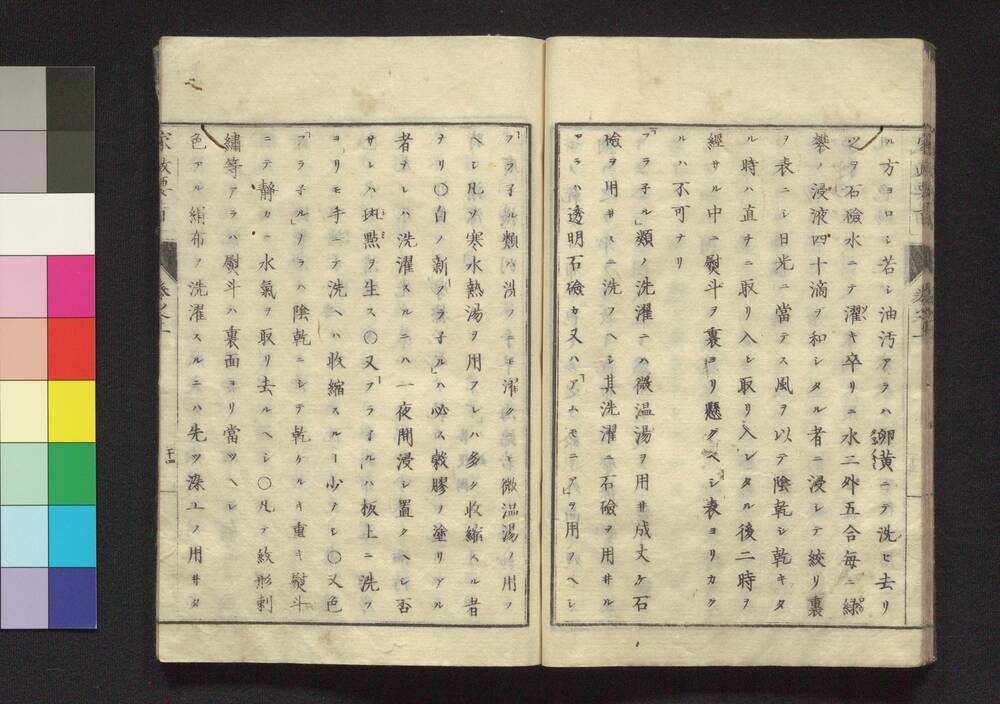 ル方ヨロシ若シ油汚アラハ卵黄ニテ洗ヒ去リ
之ヲ石鹸水ニテ濯キ卒リニ水二外五合毎ニ緑
攀ノ浸液四十滴ヲ和シタル者ニ浸シテ絞リ裏
ヲ表ニシ日光ニ當テス風ヲ以テ陰乾シ乾キタ
ル時ハ直チニ取リ入レ取リ入レタル後二時ヲ
經サル中ニ熨斗ヲ裏ヨリ懸クベシ表ヨリカク
ルハ不可ナリ
フラ子ル類ノ洗濯ニハ微温湯ヲ用井成丈ケ石
鹸ヲ用井スニ洗フヘシ其洗濯ニ石鹸ヲ用井ル
アラハ透明石鹸カ又ハアムモニアヲ用フヘシ
フラ子ル類ハ洗ノミナ濯クモ微温湯ノ用フ
ヘシ凡ソ寒水熱湯ヲ用フレハ多ク收縮スル者
ナリ〇白ノ新フラ子ルハ必ス穀膠ノ塗リアル
者ナレハ洗濯スルニハ一夜間浸シ置クヘシ否
サレハ斑點ヲ生ス〇又フラ子ルハ板上ニ洗フ
ヨリモ手ニテ洗ヘハ收縮スルー少ナシ〇又色
フラ子ルノラハ陰乾ニシテ乾ケルキ重キ熨斗
ニテ靜カニ水氣ヲ取リ去ルヘシ〇凡テ紋形刺
繡等アラハ熨斗ハ裏面ヨリ當ツヘシ
色アル絹布ヲ洗濯スルニハ先ツ深工ノ用井タ